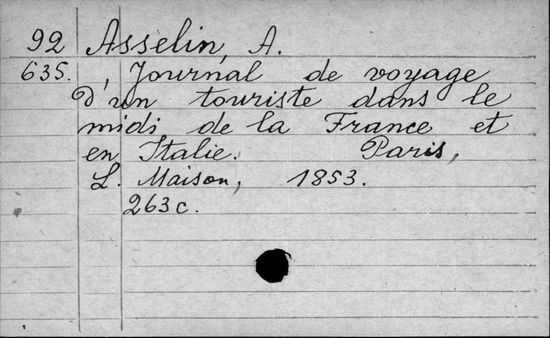 92 Asselin, A.
635. , Journal de voyage
d'un touriste dans le
midi de la France et
en Italie. Paris,
L. Maison, 1853.
263 c.